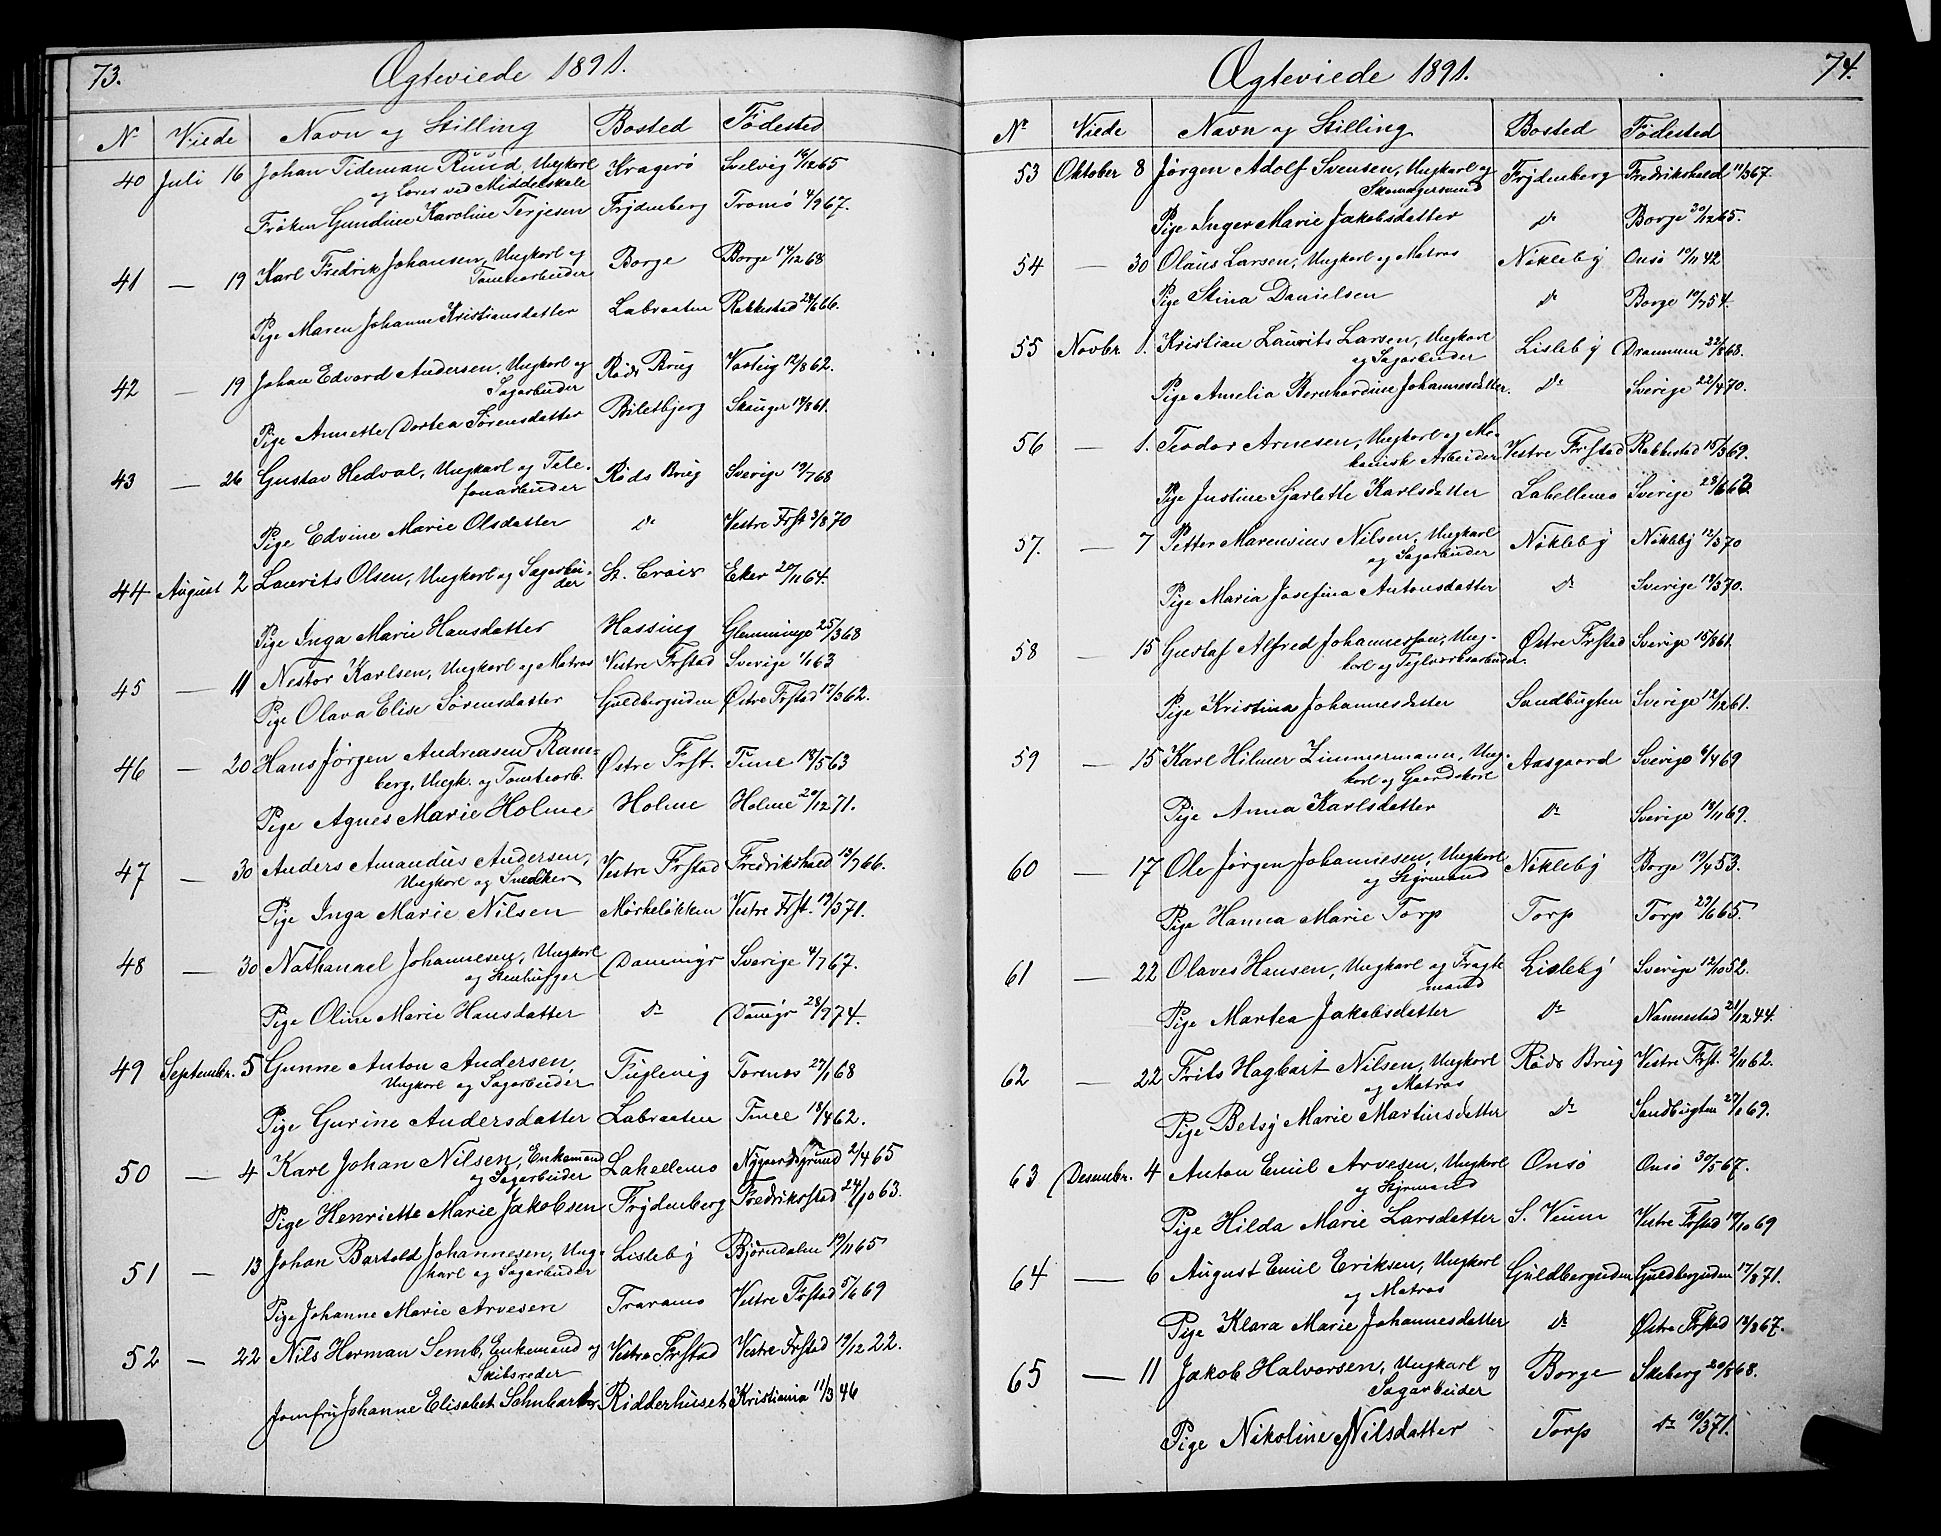 73. Ægteviede 1891.
No Viede Navn og Stilling Bosted Fødested
40 Juli 16 Johan Tideman Ruud, Ungkarl Kragerø Svelvig 16/12 65
og Lærer ved Middelskole
Frøken Gundine Karoline Terjesen Frydenberg Tromø 4/9 67.
41 — 19 Karl Fredrik Johansen, Ungkarl og Borge Borge 14/12 68
Tomtearbeider
Pige Maren Johanne Kristiansdatter Labraaten Rakkestad 28/6 66.
42 — 19 Johan Edvard Andersen, Ungkarl og Røds Brug 12/8 62.
Sagarbeider
Pige Annette Dortea Sørensdatter Biletbjerg 61.
43 — 26 Gustav Hedval, Ungkarl og Tele- Røds Brug Sverige 19/7 68
fonarbeider
Pige Edvine Marie Olsdatter Do Vestre Frst 3/8 70
44 August 2 Laurits Olsen, Ungkarl og Sagarbei- St. Croix Eker 20/11 64.
der
Pige Inga Marie Hansdatter Hassing Glemminge 25/3 68
45 — 11 Nestor Karlsen, Ungkarl og Matros Vestre Frstad Sverige 1/1 63
Pige Olava Elise Sørensdatter Guldbergsiden Østre Frstad 17/3 62.
46 — 20 Hans Jørgen Andreasen Ram- Østre Frst. Tune 18/5 63
berg, Ungk. og Tomtearb.
Pige Agnes Marie Holme Holme Holme 20/12 71.
47 — 30 Anders Amandus Andersen, Vestre Frstad Fredrikshald 13/7 66.
Ungkarl og Snedker
Pige Inga Marie Nilsen Mørkeløkken Vestre Frst. 19/3 71.
48 — 30 Nathanael Johannesen, Ungkarl Dammigr Sverige 4/7 67.
og Stenhugger
Pige Oline Marie Hansdatter Do 28/9 74.
49 Septembr. 5 Gunne Anton Andersen, Fuglevig Torsnes 27/1 68
Ungkarl og Sagarbeider
Pige Gurine Andersdatter Labraaten Tune 18/4 62.
50 — 4 Karl Johan Nilsen, Enkemand Lahellemo Nygaardsgrund 2/4 65
og Sagarbeider
Pige Henriette Marie Jakobsen Frydenberg Fredrikstad 24/10 63.
51 — 13 Johan Bartold Johannesen, Ung- Lisleby Bjørndalen 19/11 65
karl og Sagarbeider
Pige Johanne Marie Arvesen Traramo Vestre Frstad 5/6 69
52 — 22 Nils Herman Semb, Enkemand og Vestre Frstad Vestre Frstad 19/12 22.
Skibsreder
Jomfru Johanne Elisabet Ridderhuset Kristiania 11/3 46
Ægteviede 1891. 74.
No Viede Navn og Stilling Bosted Fødested
53 Oktober 8 Jørgen Adolf Svensen, Ungkarl og Frydenberg Fredrikshald 11/3 67.
Skomagersvend
Pige Inger Marie Jakobsdatter Do Borge 20/12 65.
54 — 30 Olaus Larsen, Ungkarl og Matros Nøkleby Onsø 17/11 42
Pige Stina Danielsen Do Borge 10/7 54.
55 Novbr 1. Kristian Laurits Larsen, Ungkarl Lisleby Drammen 22/8 68.
og Sagarbeider
Pige Amelia Bernhardine Johannesdatter. Do Sverige 22/4 70.
56 — 1. Teodor Arnesen, Ungkarl og Me- Vestre Frstad Rakkestad 15/3 69.
kanisk Arbeider
Pige Justine Sjarlotte Karlsdatter Lahellemo Sverige
57. — 7 Petter Marensius Nilsen, Ungkarl Nøkleby Nøkleby 12/3 70
og Sagarbeider
Pige Maria Josefina Antonsdatter Do Sverige 19/3 70.
58 — 15 Gustaf Alfred Johannesson, Ung- Østre Frstad Sverige 15/8 61.
karl og Teglværksarbeider.
Pige Kristina Johannesdatter Sandbugten Sverige 12/12 61.
59 — 15 Karl Hilmer Zimmermann, Ung- Aasgaard Sverige 6/4 69
karl og Gaardskarl
Pige Anna Karlsdatter Do Sverige 18/11 69.
60 — 17 Ole Jørgen Johannesen, Ungkarl Nøkleby Borge 19/4 53.
og Styrmand
Pige Hanna Marie Torp Torp Torp 23/6 65.
61 — 22 Olaves Hansen, Ungkarl og Fragt- Lisleby Sverige 12/10 52.
mand
Pige Martea Jakobsdatter Do Nannestad 21/12 44.
62 — 22 Frits Hagbart Nilsen, Ungkarl Røds Brug Vestre Frst. 2/11 62.
og Matros
Pige Betsy Marie Martinsdatter Do Sandbugten 27/1 69.
63 Desembr. 4 Anton Emil Arvesen, Ungkarl Onsø Onsø 30/5 67.
og Styrmand
Pige Hilda Marie Larsdatter S. Veum Vestre Frstad 19/10 69
64 — 6 August Emil Eriksen, Ungkarl Guldbergsiden Guldbergsiden 17/8 71.
og Matros
Pige Klara Marie Johannesdatter Do Østre Frstad 13/8 67.
65 — 11 Jakob Halvorsen, Ungkarl og Borge Skeberg 20/8 68.
Sagarbeider
Pige Nikoline Nilsdatter Torp Do 19/3 71.